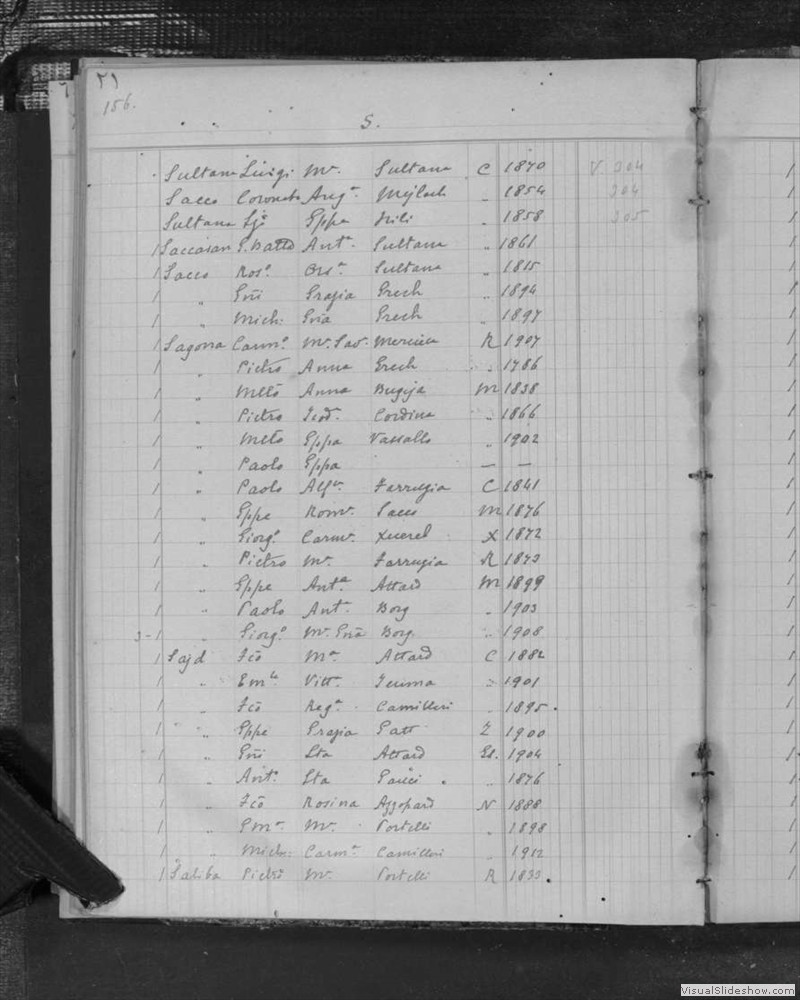 156.
S.
Sultana Luigi Mª. Sultana C 1870 V 304
Sacco Coronato Ang.ª Mejlach „ 1854 304
Sultana Gjō Eppa Hili „ 1858 305
1 Saccasan G. Batta Ant.ª Sultana „ 1861
1 Sacco Ros.º Ors.ª Sultana „ 1815
1 „ Grazia Grech „ 1894
1 „ Mich: Grech „ 1897
1 Sagona Carm.º M. Sav. Mercieca R 1907
1 „ Pietro Anna Grech „ 1786
1 „ Anna Bugeja M 1838
1 „ Pietro Teod.ª Cordina „ 1866
1 „ Eppa Vassallo „ 1902
1 „ Paolo Eppa — —
1 „ Paolo Farrugia C 1841
1 „ Eppe Rom.ª Sacco M 1876
1 „ Giorg.º Carm.ª Xuereb X 1872
1 „ Pietro Mª. Farrugia R 1873
1 „ Eppe Ant.ª Attard M 1899
1 „ Paolo Ant.ª Borg „ 1903
3-1 „ Giorg.º Borg „ 1908
1 Sajd Fcō Mª Attard C 1882
1 „ Em.le Vitt.ª Teuma „ 1901
„ Fcō Reg.ª Camilleri „ 1895
1 „ Eppe Grazia Gatt Z 1900
1 „ Attard 1904
1 „ Ant.º „ 1876
1 „ Fcō Rosina Azzopard N 1888
1 „ Mª. Portelli „ 1898
1 „ Mich: Carm.ª Camilleri „ 1912
1 Saliba Pietro Mª. Portelli R 1833
VisualSlideshow.com